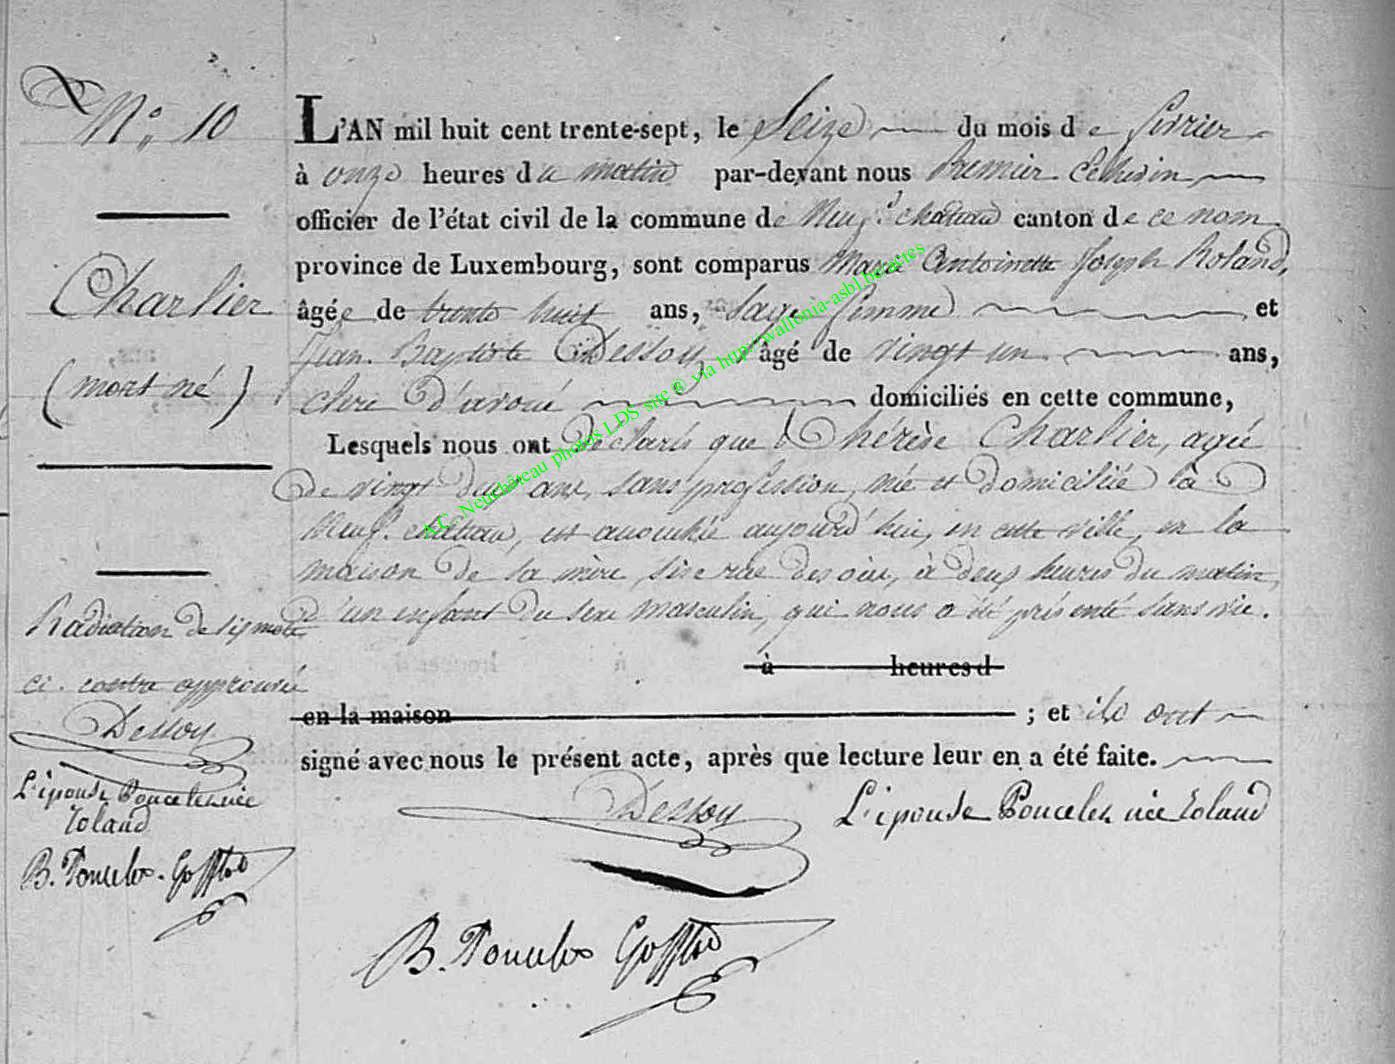 N° 10
Charlier
(mort né)
Radiation de sept mots
ci-contre approuvée
Dessoy
L'épouse Poncelet née
Roland
B. Poncelet-
L'AN mil huit cent trente-sept, le Seize du mois de février
à onze heures du matin par-devant nous Premier Echevin
officier de l'état civil de la commune de Neufchateau canton de ce nom
province de Luxembourg, sont comparus Marie Antoinette Joseph Roland,
âgée de trente huit ans, Sage femme et
Jean Baptiste Dessoy, âgé de vingt un ans,
clerc d'avoué domiciliés en cette commune,
Lesquels nous ont déclaré que Thérèse Charlier, agée
de vingt deux ans, sans profession, née et domiciliée à
Neufchateau, est accouchée aujourd'hui, en cette ville, en la
maison de sa mère, sise rue des oies, à deux heures du matin,
d'un enfant du sexe masculin, qui nous a été présenté sans vie.
à heures d
en la maison ; et ils ont
signé avec nous le présent acte, après que lecture leur en a été faite.
Dessoy L'épouse Poncelet née Roland
B. Poncelet
A.C. Neufchâteau photos LDS site @ via http://wallonia-asbl.be/actes